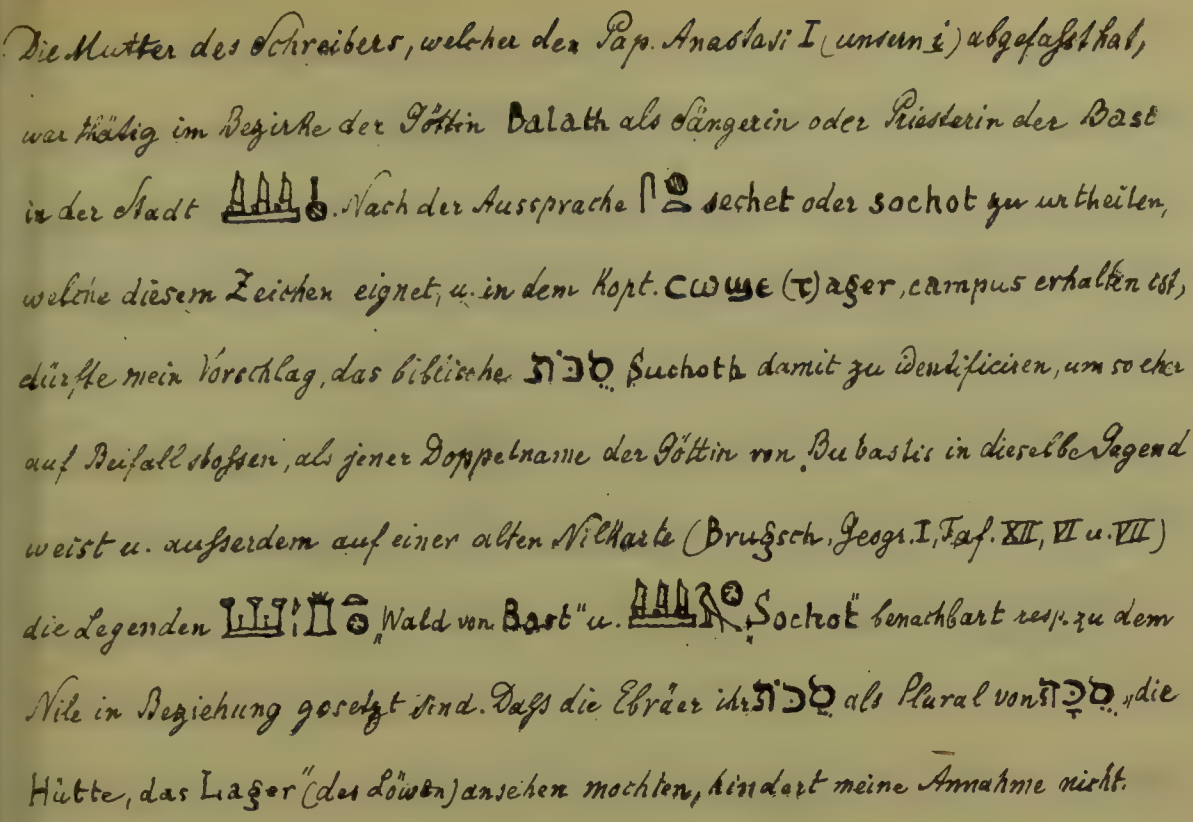 Die Mutter des Schreibers, welcher den Pap. Anastasi I (unsern i) abgefaßt hat,
war thätig im Bezirke der Göttin Balath als Sängerin oder Priesterin der Bast
in der Stadt . Nach der Aussprache sechet oder sochot zu urtheilen,
welche diesem Zeichen eignet, u. in dem Kopt. ⲥⲱϣⲉ (ⲧ) ager, campus erhalten ist,
dürfte mein Vorschlag, das biblische סֻכֹּת Suchoth damit zu identificiren, um so eher
auf Beifall stoßen, als jener Doppelname der Göttin von Bubastis in dieselbe Gegend
weist u. außerdem auf einer alten Nilkarte (Brugsch, Geogr. I, Taf. XII, VI u. VII)
die Legenden „Wald von Bast“ u. „Sochot“ benachbart resp. zu dem
Nile in Beziehung gesetzt sind. Daß die Ebräer ihr סֻכֹּת als Plural von סֻכָּה „die
Hütte, das Lager“ (des Löwen) ansehen mochten, hindert meine Annahme nicht.